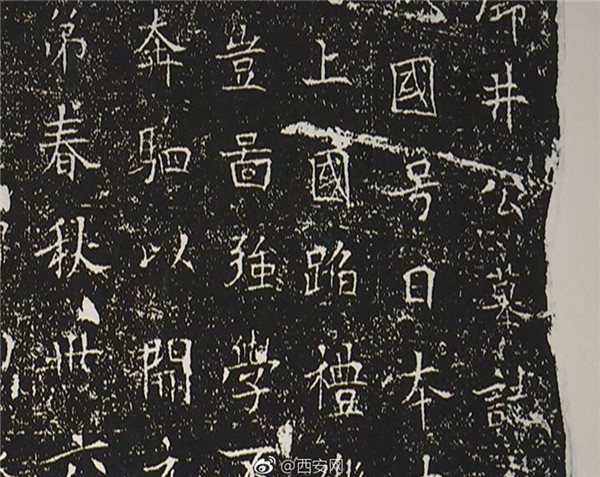 御井公墓誌
國号日本
上國蹈禮
豈啚強學不
奔駟以開元
弟春秋卅六
@西安网